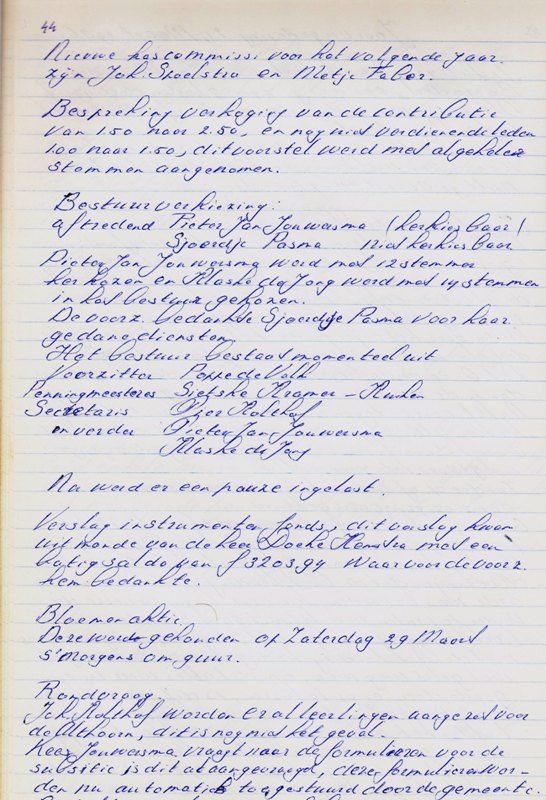 44
Nieuwe kascommissi voor het volgende jaar.
zijn Joh. Spoelstra en Metje Faber.
Bespreking verhoging van de contributie
van 1.50 naar 2.50, en nog niet verdienende leden
1.00 naar 1.50, dit voorstel werd met algehele
stemmen aangenomen.
Bestuurverkiezing:
aftredend Pieter Jan Jouwersma (herkiesbaar)
Sjoerdje Pasma niet herkiesbaar
Pieter Jan Jouwersma werd met 12 stemmen
herkozen en Klaske de Jong werd met 14 stemmen
in het bestuur gekozen.
De voorz. bedankte Sjoerdje Pasma voor haar
gedane diensten
Het bestuur bestaat momenteel uit
Voorzitter Poppe de Valk
Penningmeesteres Sietske Kramer -
Secretaris Holthof
en verder Pieter Jan Jouwersma
Klaske de Jong
Na werd er een pauze ingelast.
Verslag instrumenten fonds, dit verslag kwam
uit monde van de heer Doeke met een
batig saldo van f 3203,94 waarvoor de voorz.
hem bedankte.
Bloemen aktie.
Deze word gehouden op Zaterdag 29 Maart
s'morgens om 9 uur.
Rondvraag.
Joh. Holthof worden er al leerlingen aangezet voor
de Althoorn, dit is nog niet het geval.
Kees Jouwersma vraagt naar de formulieren voor de
subsitie is dit al aangevraagd, deze formulieren wor-
den nu automatisch toegestuurd door de gemeente.